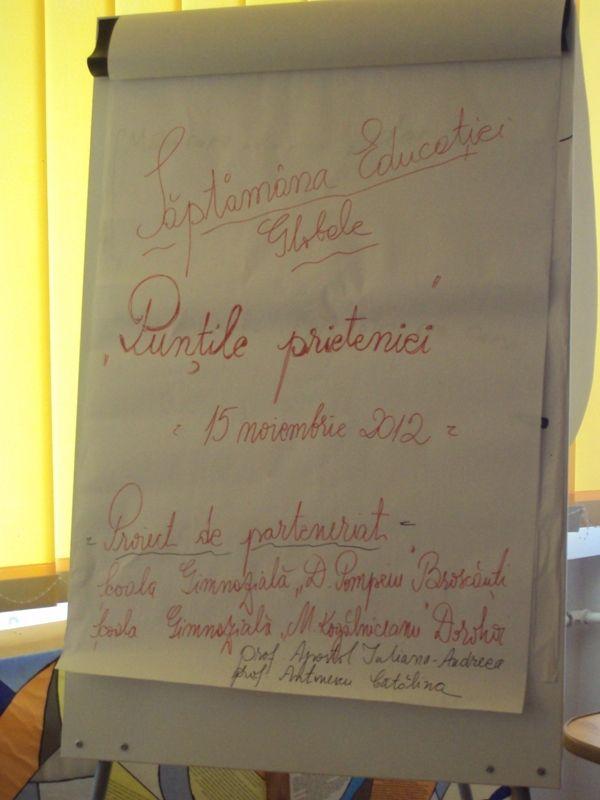 Săptămâna Educației
Globale
„Punțile prieteniei”
~ 15 noiembrie 2012 ~
- Proiect de parteneriat -
Școala Gimnazială „D. Pompeiu” Broscăuți
Școala Gimnazială „M. Kogălniceanu” Dorohoi
prof. Apostol Iuliana-Andreea
prof. Antonescu Cătălina